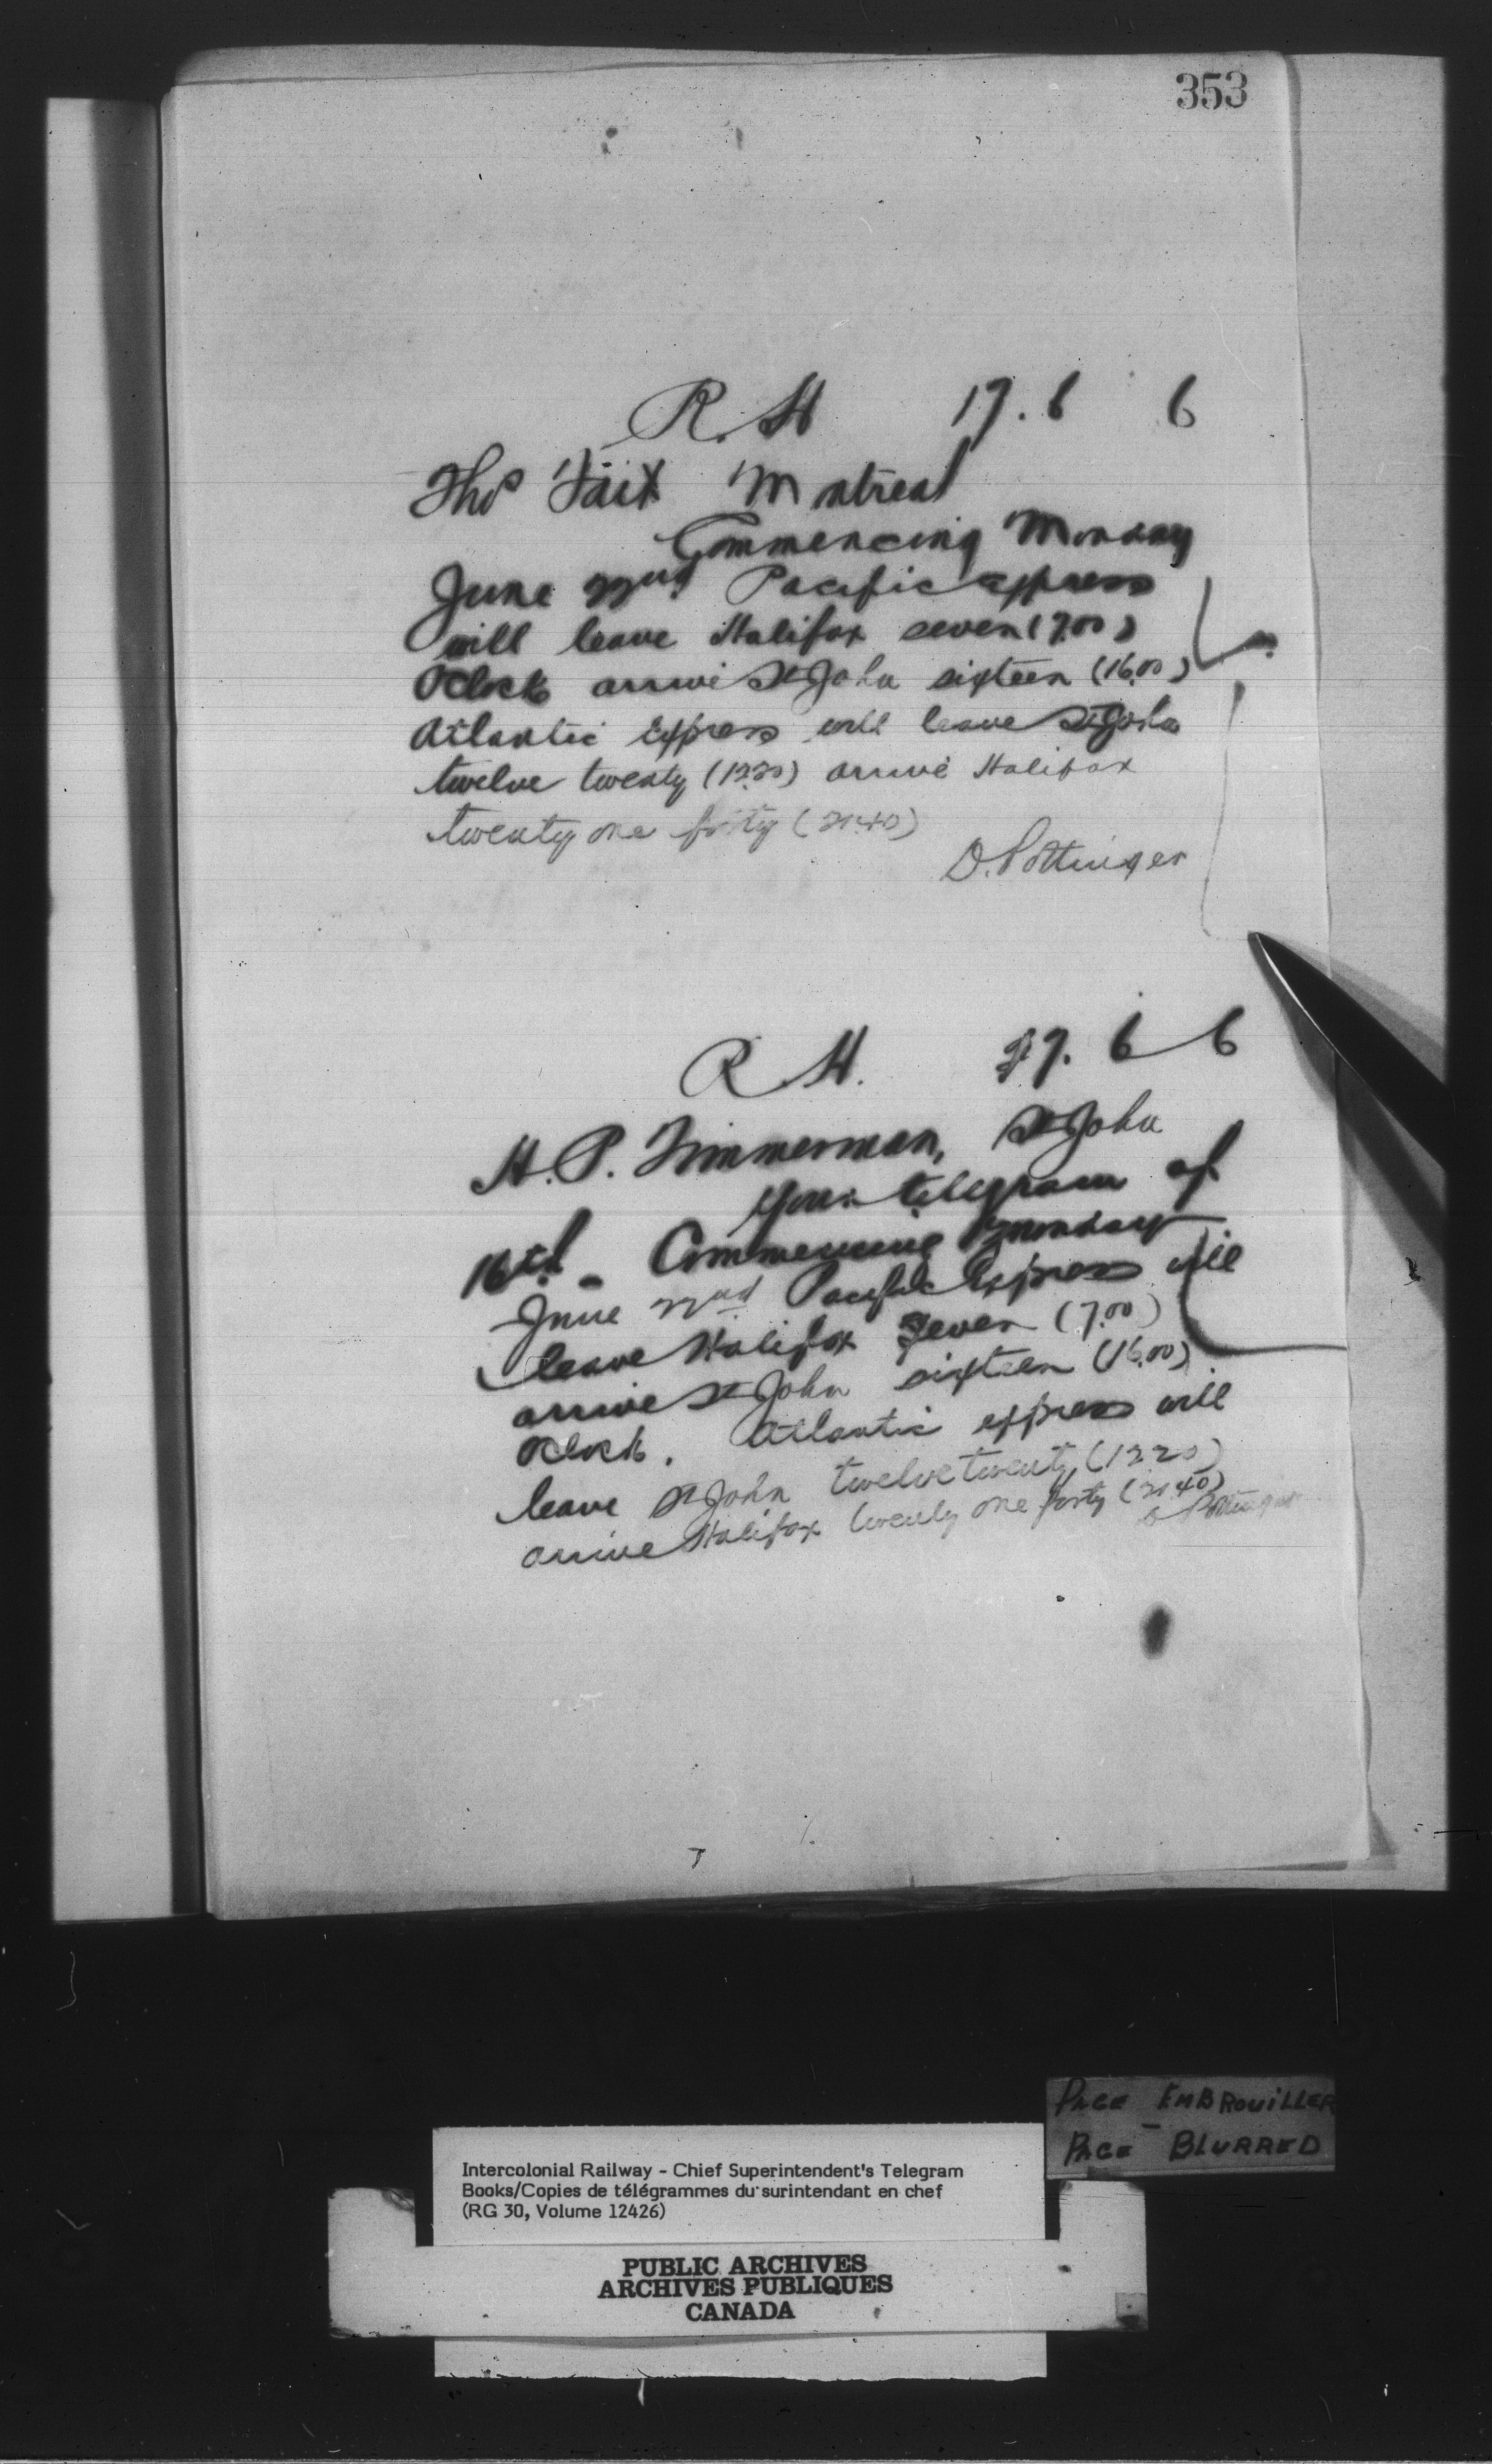 353
R. H 17. 6 6
Thos Tait Montreal
Commencing Monday
June 22nd Pacific express
will leave Halifax seven (7.00)
Oclock arrive St John sixteen (16.00)
Atlantic Express will leave St John
twelve twenty (12.20) arrive Halifax
twenty one forty (21.40)
D. Pottinger
R H. 17. 6 6
H. P. Timmerman, St John
Your telegram of
16th. Commencing Monday
June 22nd Pacific Express will
leave Halifax Seven (7.00)
arrive St John sixteen (16.00)
Oclock. Atlantic express will
leave St John twelve twenty (12 20)
arrive Halifax twenty one forty (21 40)
D Pottinger
PAGE EMBROUILLER
PAGE - BLURRED
Intercolonial Railway - Chief Superintendent's Telegram
Books/Copies de télégrammes du surintendant en chef
(RG 30, Volume 12426)
PUBLIC ARCHIVES
ARCHIVES PUBLIQUES
CANADA